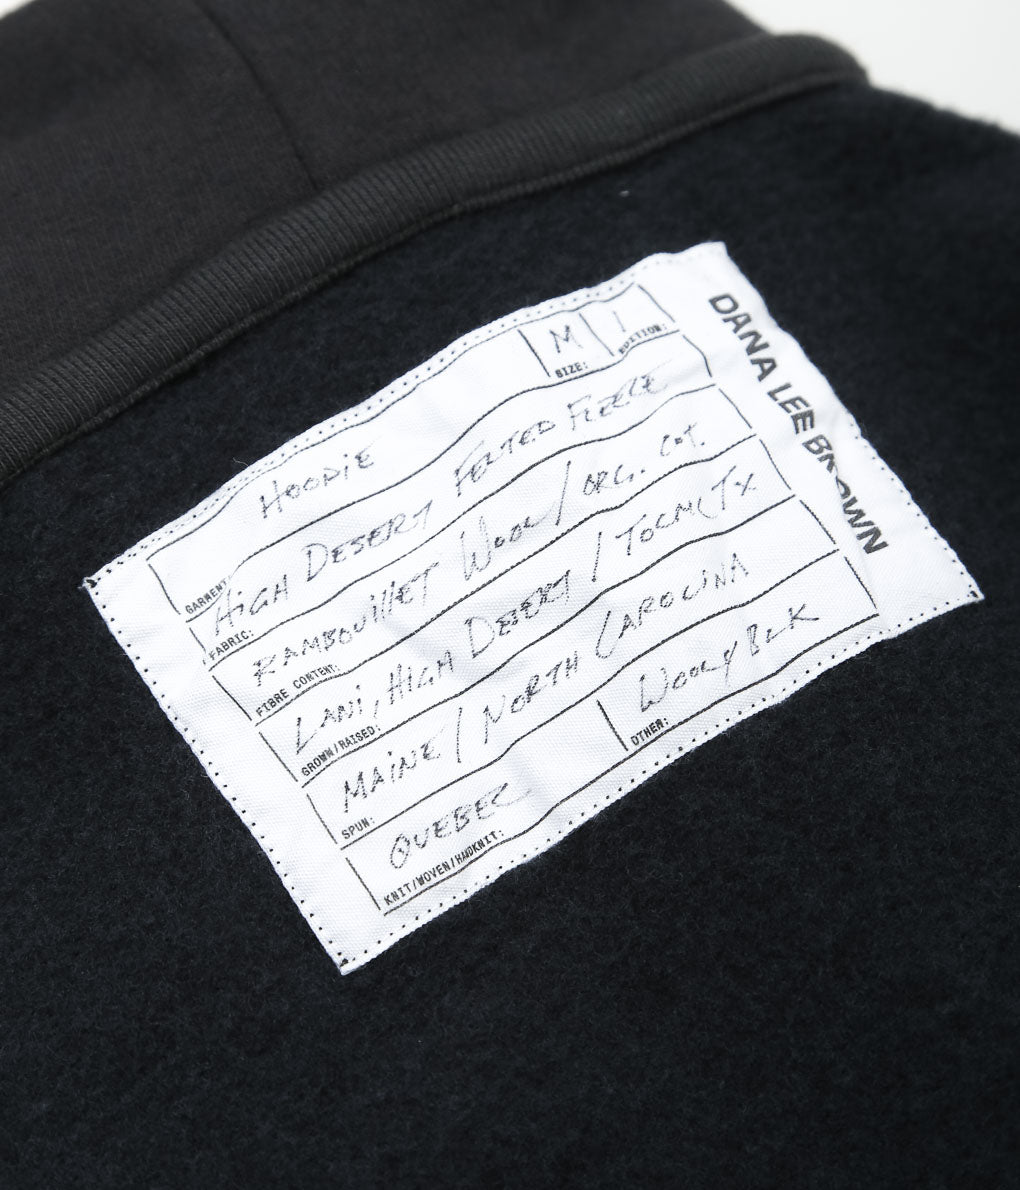 DANA LEE BROWN
M 1
SIZE: EDITION:
HOODIE
GARMENT:
HIGH DESERT FELTED FLEECE
FABRIC:
RAMBOUILLET WOOL / ORG. COT.
FIBRE CONTENT:
LANI, HIGH DESERT / TX
GROWN/RAISED:
MAINE / NORTH CAROLINA
SPUN:
QUEBEC WOOLY BLK
KNIT/WOVEN/HANDKNIT: OTHER: